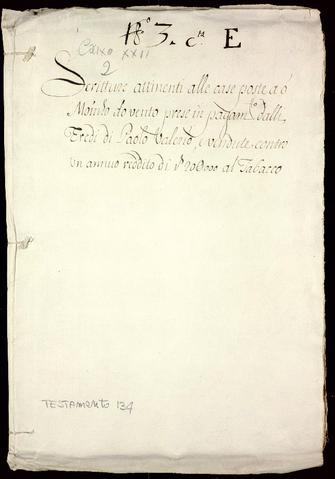 N.º 3. c.ª E
Caixa XXII
2
Scritture attinenti alle case poste a ó
Moinho do vento prese in pagam.to dalli
Eredi di Paolo Valerio, e vendute contro
un annuo reddito di 200000 al Tabacco
TESTAMENTO 134